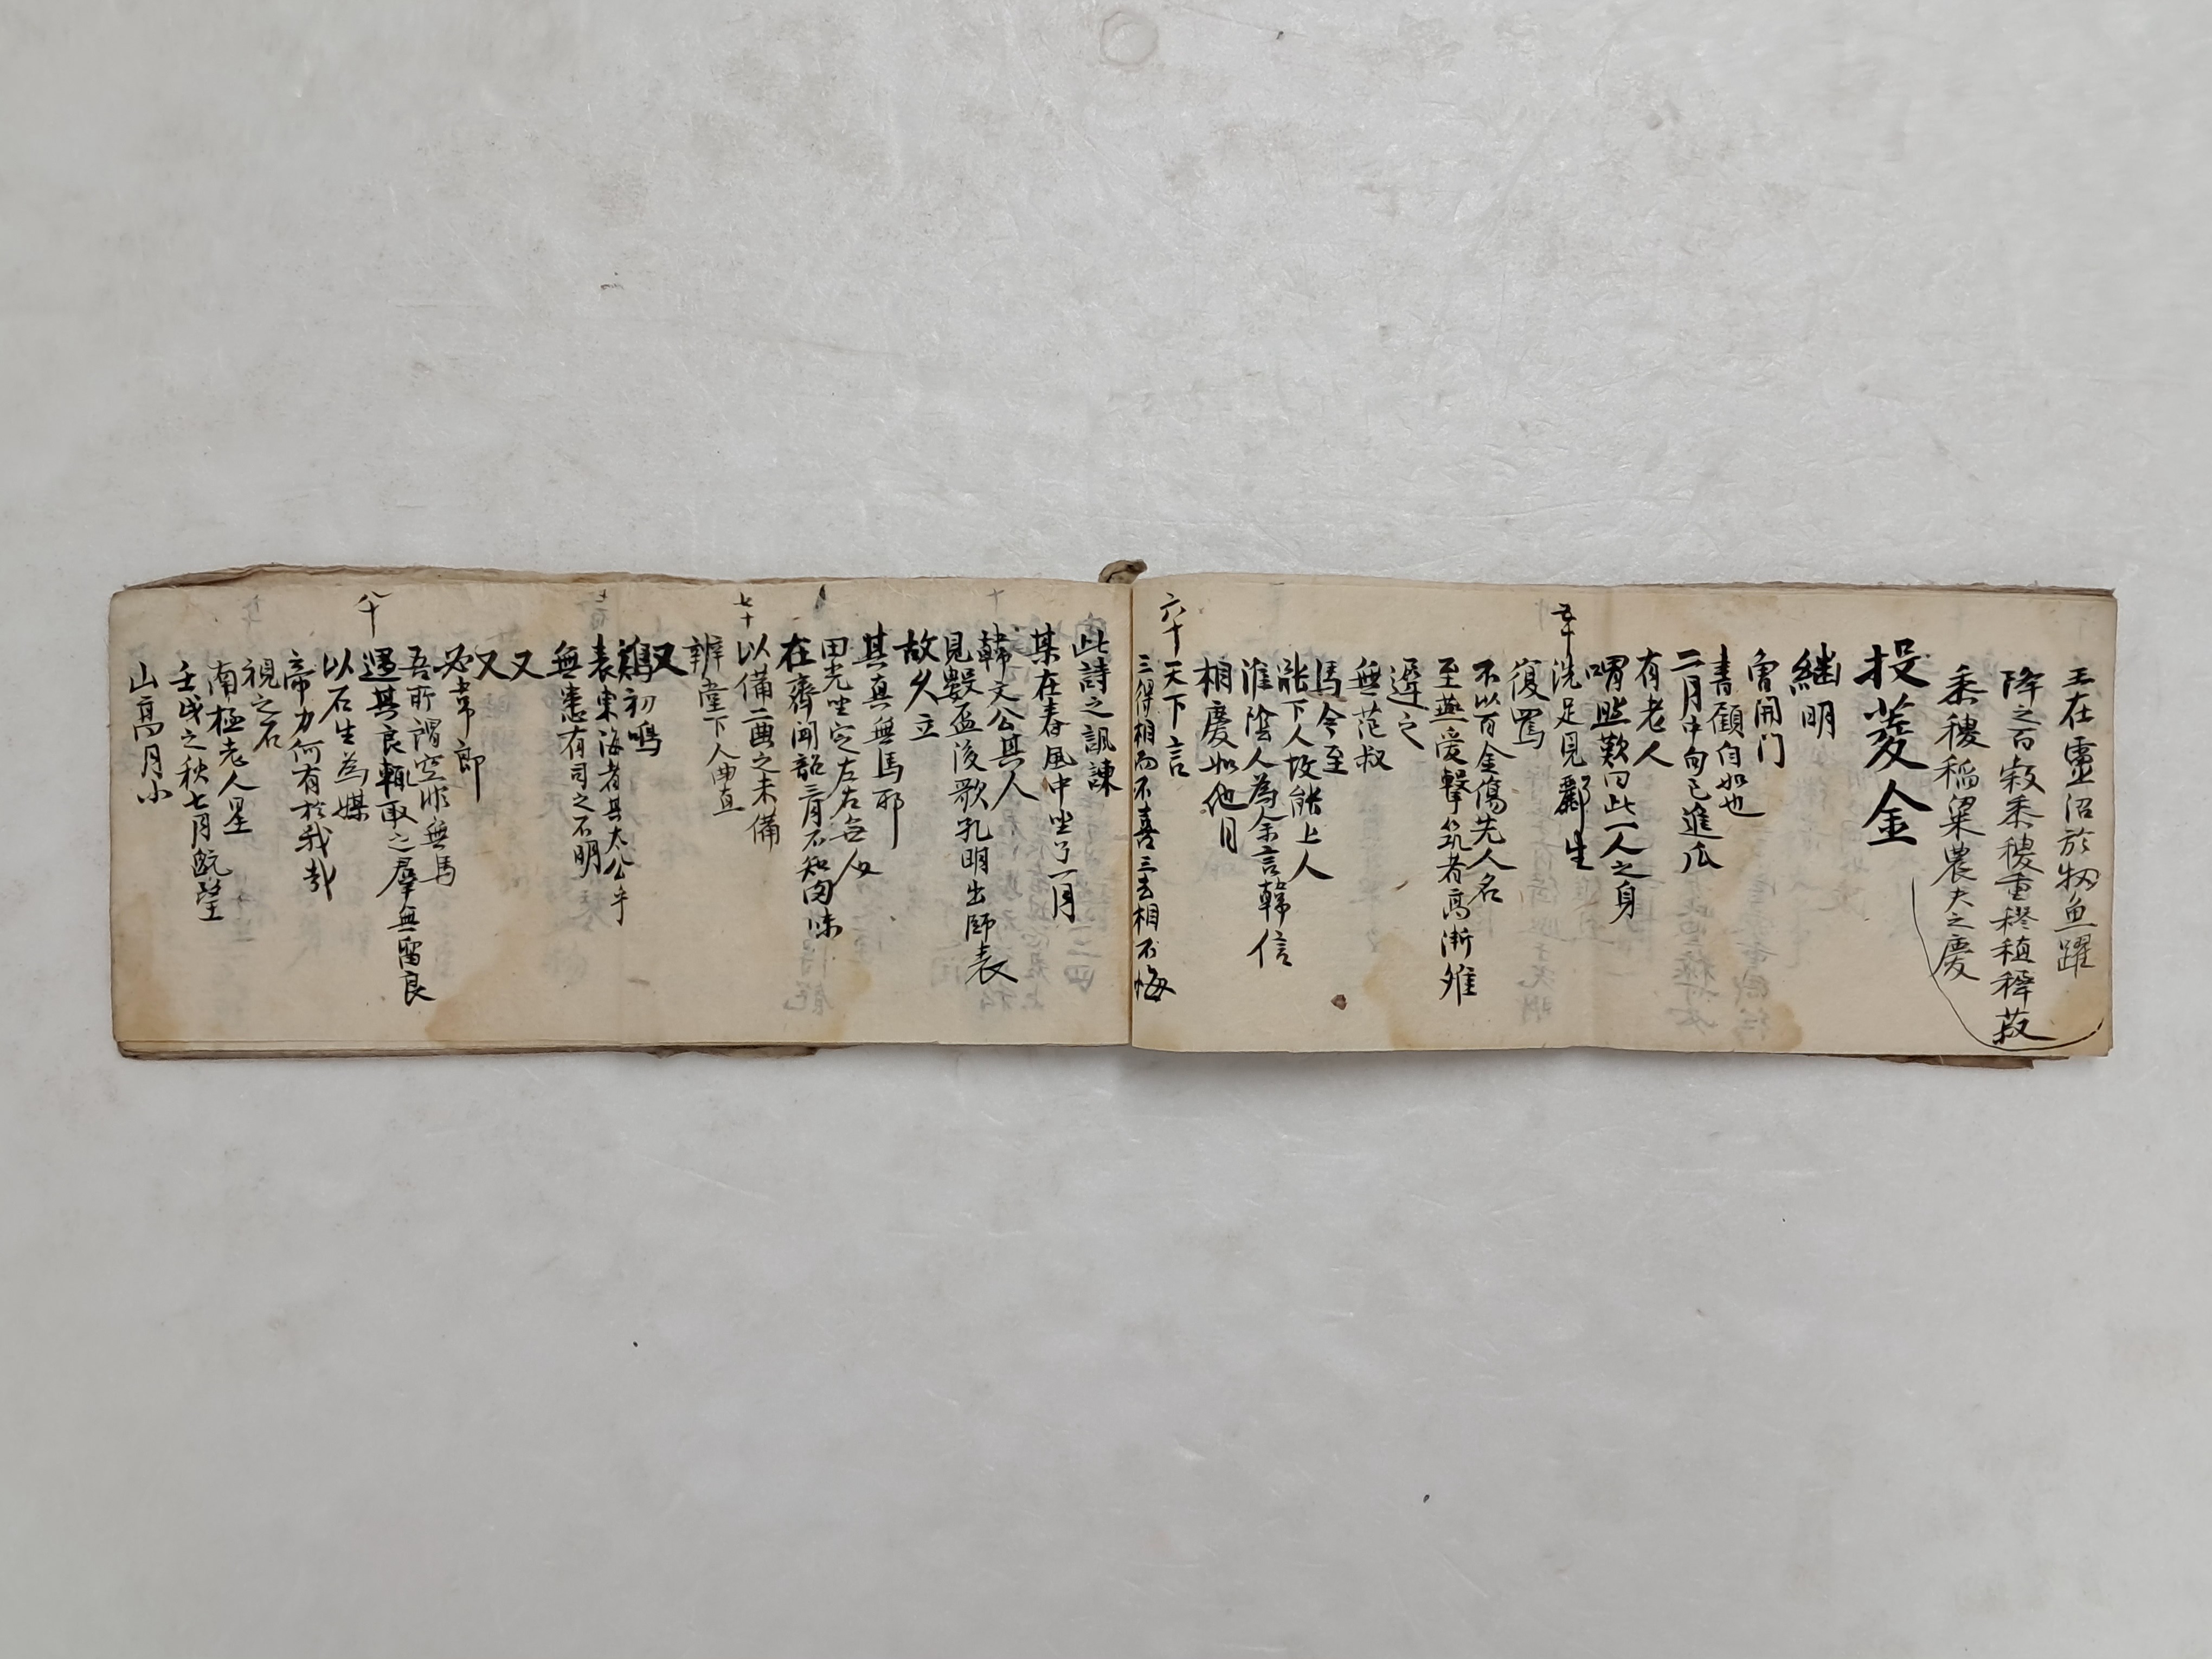 王在靈沼於牣魚躍
降之百穀黍稷重穋稙穉菽
黍稷稻粱農夫之慶
投 金
継明
魯開门
書顧自如也
二月中旬已進瓜
有老人
喟然歎曰此一人之身
五十
洗足見酈生
復罵
不以百金傷先人名
至燕愛擊筑者高漸離
遲之
無范叔
馬今至
帳下人故帳上人
淮陰人為余言韓信
相慶如他日
六十
天下言
三得相而不喜三去相不悔
此詩之諷諫
某在春風中坐了一月
韓文公其人
見數盃後歌孔明出師表
故久立
其真無馬耶
田光坐定左右無人
在齊聞韶三月不知肉味
七十
以備二典之未備
辨堂下人曲直
又
鷄初鳴
表東海者其太公乎
無患有司之不明
又
又
必 常郎
吾所謂空 無馬
八十
遇其良輒取之羣無留良
以石生為媒
帝力何有於我哉
視之石
南極老人星
壬戌之秋七月既望
山高月小